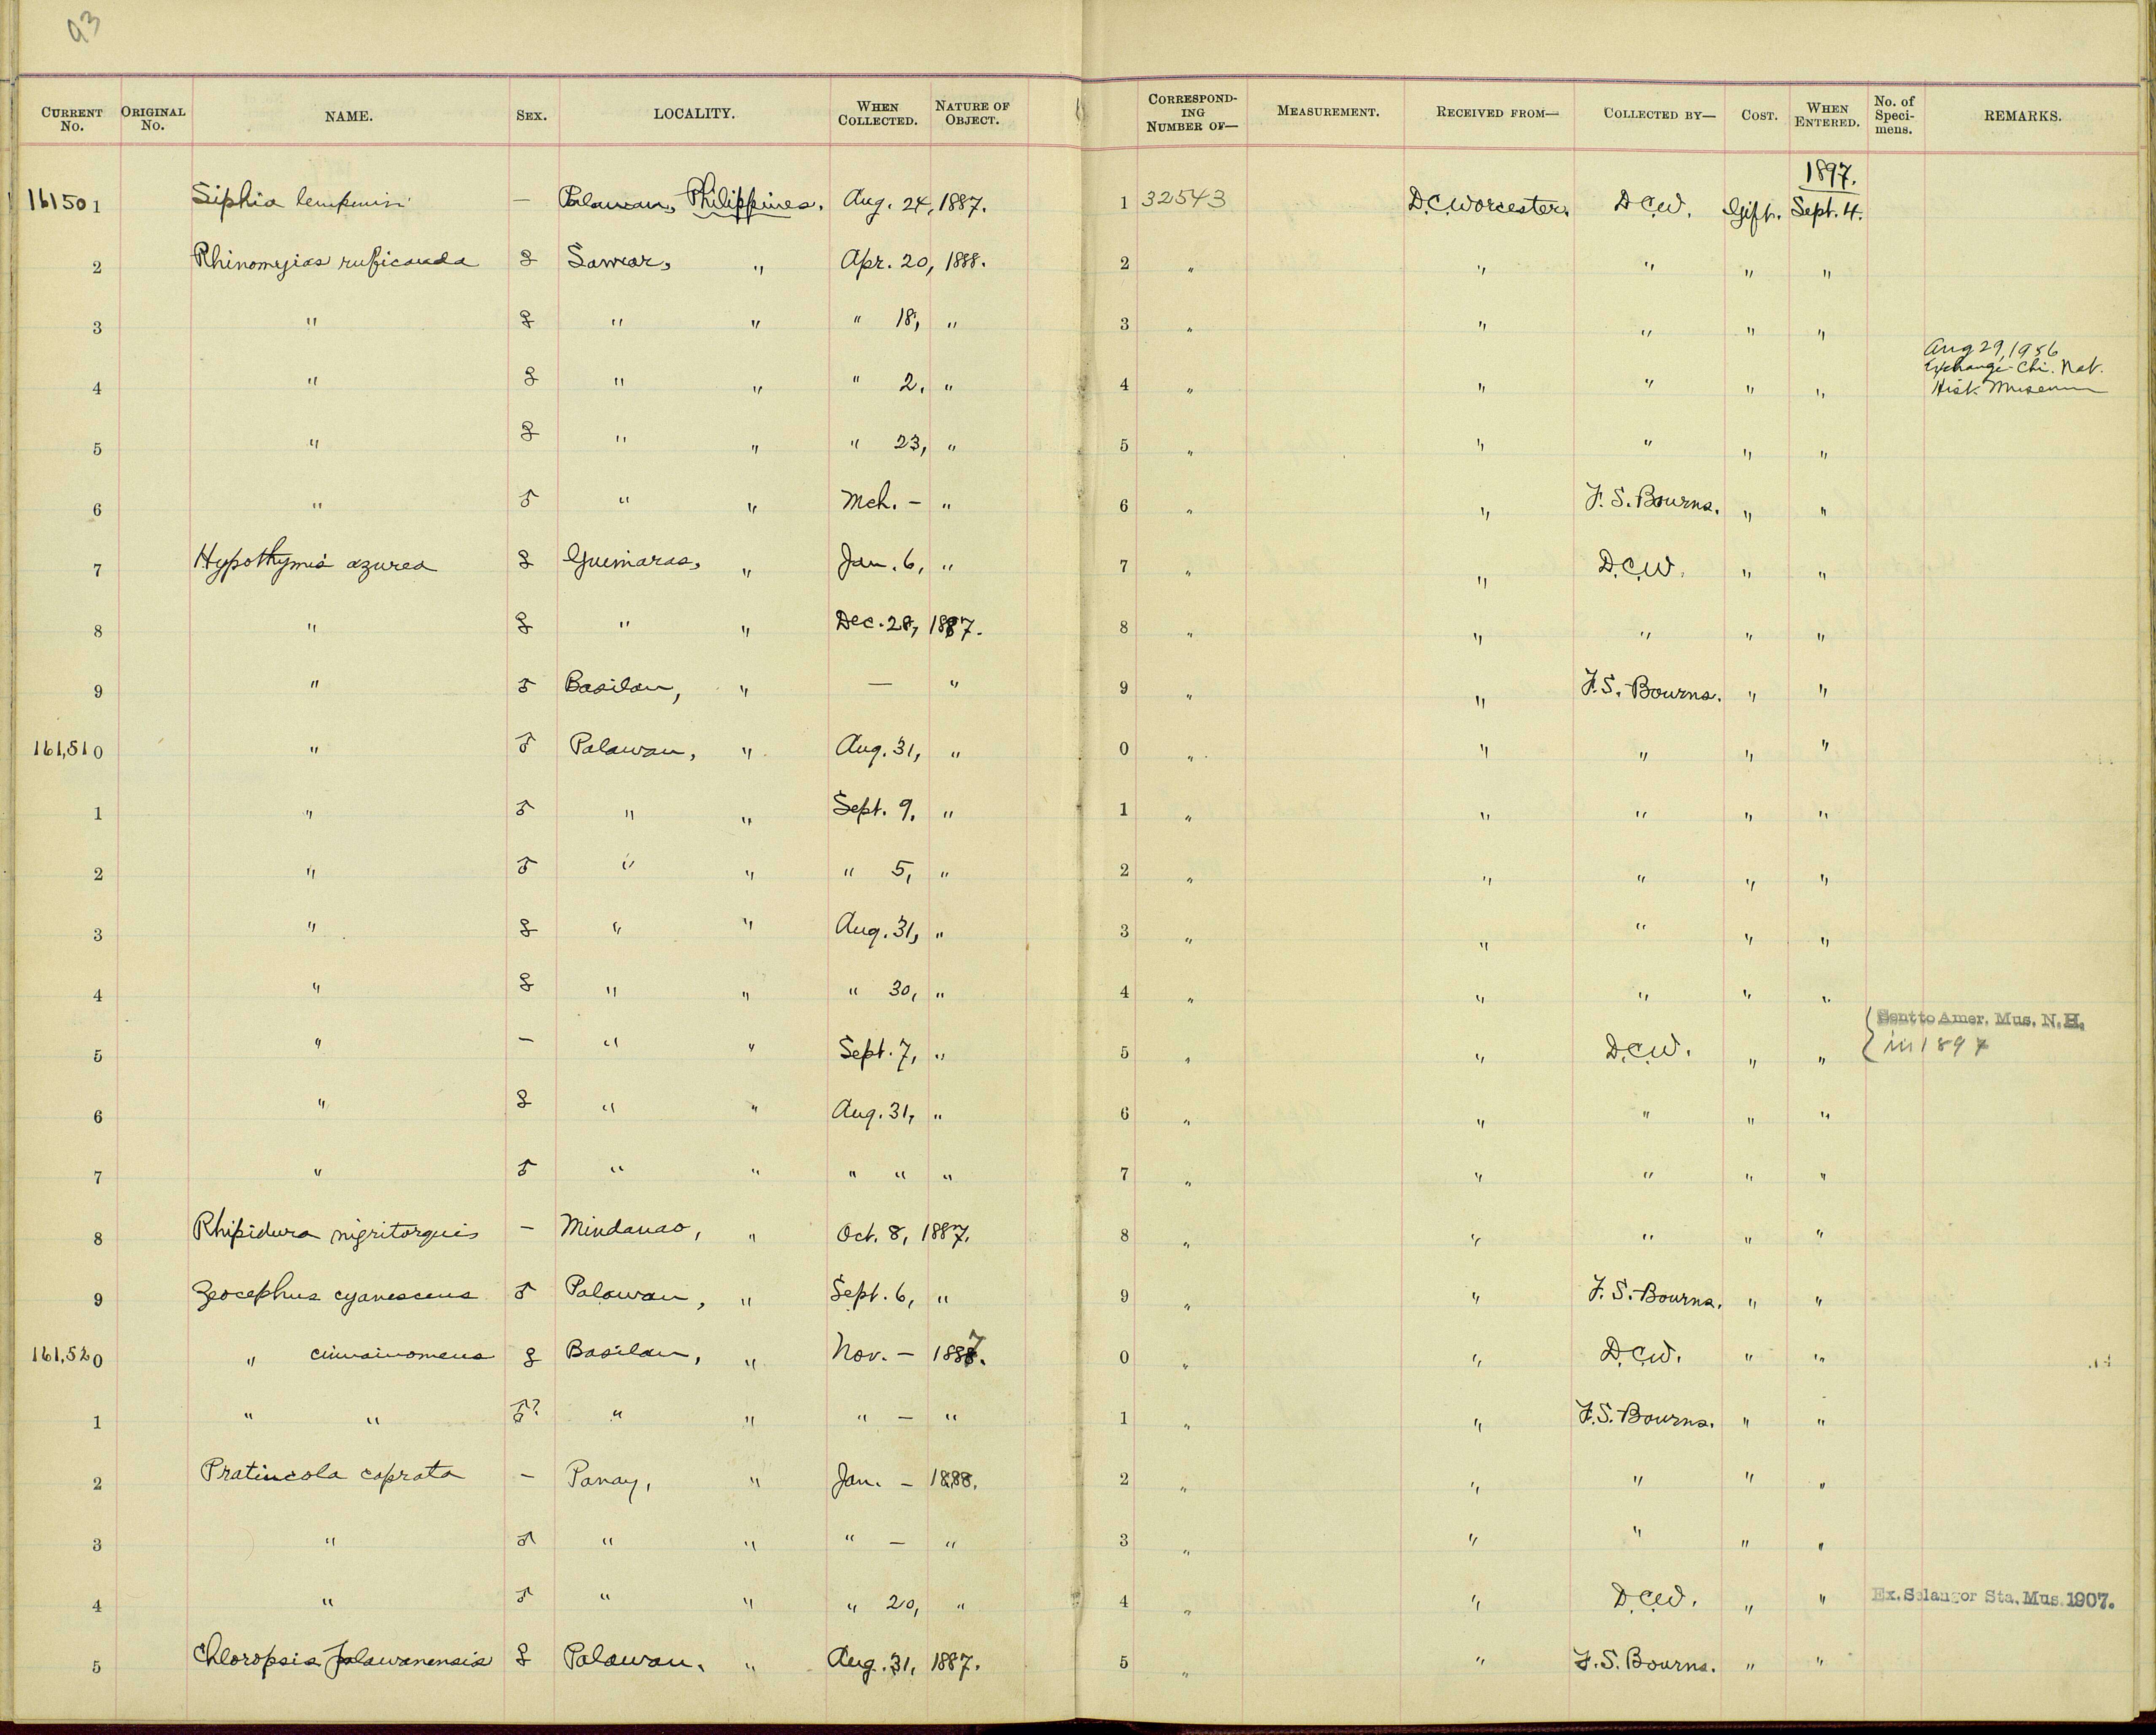 93
CURRENT No. ORIGINAL No. NAME. SEX. LOCALITY. WHEN COLLECTED. NATURE OF OBJECT. CORRESPONDING NUMBER OF— MEASUREMENT. RECEIVED FROM— COLLECTED BY— COST. WHEN ENTERED. No. of Specimens. REMARKS.
1897.
161501 Siphia — Palawan, Philippines. Aug. 24, 1887. 1 32543 D.C. Worcester. D.C.W. Gift. Sept. 4.
2 Rhinomyias ruficauda ♀ Samar, " Apr. 20, 1888. 2 " " " " "
3 " ♀ " " " 18, " 3 " " " " "
4 " ♀ " " " 2, " 4 " " " " " Aug 29, 1956 Exchange - Chi. Nat. Hist. Museum
5 " ♀ " " " 23, " 5 " " " " "
6 " ♂ " " Mch. — " 6 " " F. S. Bourns. " "
7 Hypothymis azurea ♀ Guimaras, " Jan. 6, " 7 " " D.C.W. " "
8 " ♀ " " Dec. 28, 1887. 8 " " " " "
9 " ♂ Basilan, " — " 9 " " F. S. Bourns. " "
161,510 " ♂ Palawan, " Aug. 31, " 0 " " " " "
1 " ♂ " " Sept. 9. " 1 " " " " "
2 " ♂ " " " 5, " 2 " " " " "
3 " ♀ " " Aug. 31, " 3 " " " " "
4 " ♀ " " " 30, " 4 " " " " "
5 " — " " Sept. 7, " 5 " " D.C.W. " " { Sent to Amer. Mus. N. H. in 1897
6 " ♀ " " Aug. 31, " 6 " " " " "
7 " ♂ " " " " " 7 " " " " "
8 Rhipidura nigritorquis — Mindanao, " Oct. 8, 1887. 8 " " " " "
9 Zeocephus cyanescens ♂ Palawan, " Sept. 6, " 9 " " F. S. Bourns. " "
161,520 " cinnamomeus ♀ Basilan, " Nov. — 1887. 0 " " D.C.W. " "
1 " " ♂? " " " — " 1 " " F. S. Bourns. " "
2 Pratincola caprata — Panay, " Jan. — 1888. 2 " " " " "
3 " ♂ " " " — " 3 " " " " "
4 " ♂ " " " 20, " 4 " " D.C.W. " " Ex. Selangor Sta. Mus. 1907.
5 Chloropsis palawanensis ♀ Palawan, " Aug. 31, 1887. 5 " " F. S. Bourns. " "